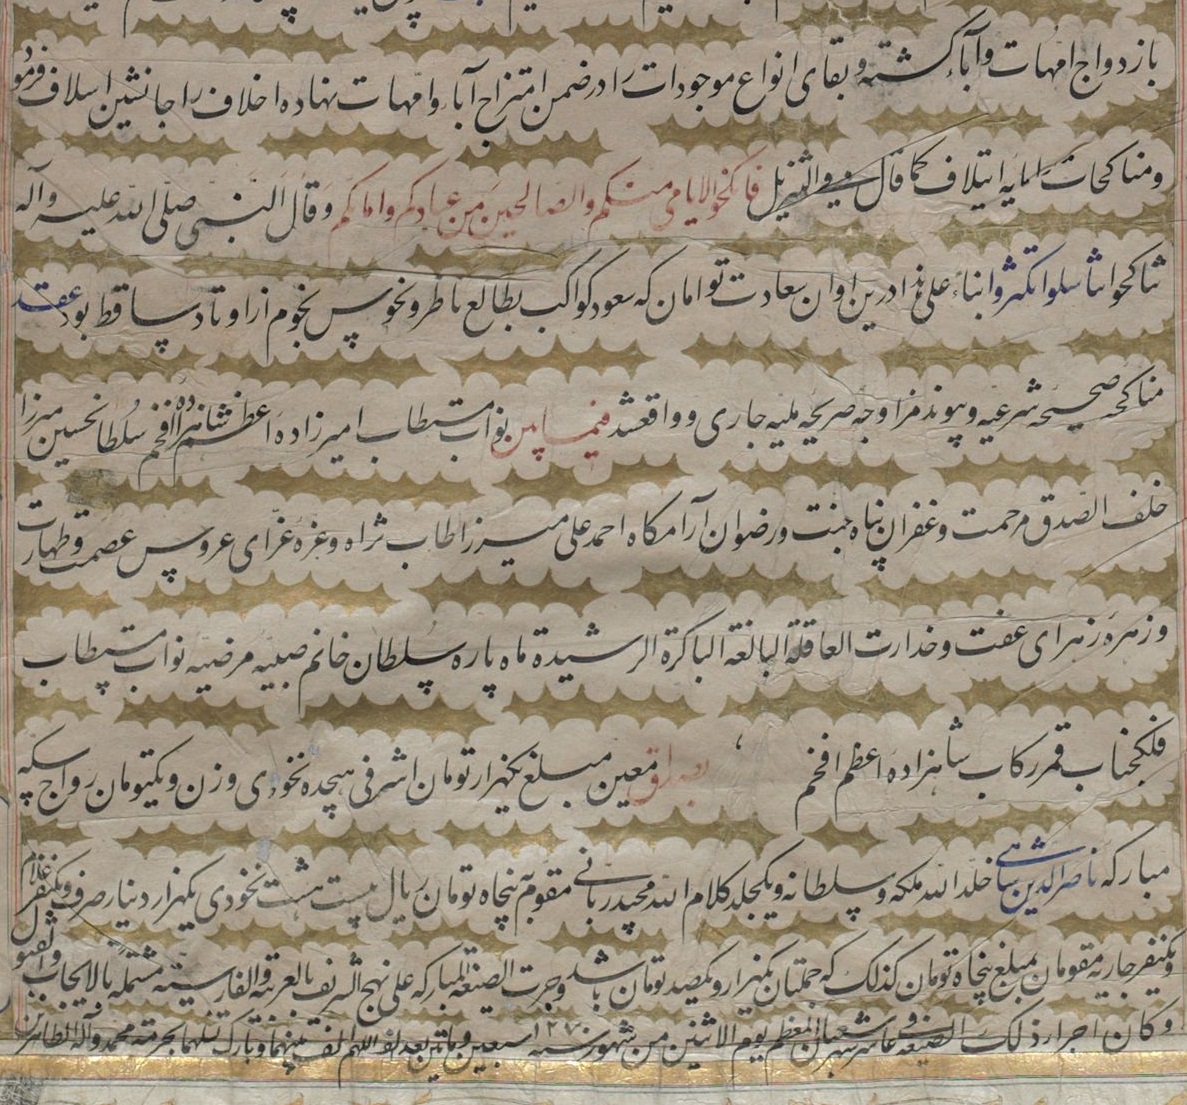 بازدواج امهات و آباء گشته و بقای انواع موجودات را در ضمن امتزاج آباء و امهات نهاده اخلاف را جانشین اسلاف فرمود
و مناکحات را مایه ایتلاف کما قال فی التنزیل فانکحوا الایامی منکم و الصالحین من عبادکم و امائکم و قال النبی صلی الله علیه و آله
تناکحوا تناسلوا تکثروا ابناء علی هذا درین اوان سعادت توامان که سعود کواکب بطالع ناظر و نحوس نجوم از اوتاد ساقط بود عقد
مناکحه صحیحه شرعیه و پیوند مزاوجه صریحه ملیه جاری و واقع شد فیما بین نواب مستطاب امیرزاده اعظم شاهزاده افخم سلطانحسین میرزا
خلف الصدق مرحمت و غفران پناه جنت و رضوان آرامگاه احمد علی میرزا طاب ثراه و غره غرای عروس عصمت و طهارت
و زهره زهرای عفت و خدارت العاقلة البالغة الباکرة الرشیدة ماه پاره سلطان خانم صبیه مرضیه نواب مستطاب
فلکجناب قمر رکاب شاهزاده اعظم افخم بصداق معین مبلغ یکهزار تومان اشرفی هیجده نخودی وزن و یکتومان رواج سکه
مبارکه ناصرالدین شاهی خلد الله ملکه و سلطانه و یکجلد کلام الله مجید ربانی مقوم به پنجاه تومان ریال بیست هشت نخودی یکهزار دینار صرف و یکنفر غلام
و یکنفر جاریه مقومان بمبلغ پنجاه تومان کذلک که جملتان یکهزار و یکصد تومان باشد و جرت الصیغة المبارکه علی نهج الشریف بالعربیة و الفارسیة مشتملة بالایجاب و القبول
و کان اجراء ذلک الصیغه فی عاشر شهر شعبان المعظم یوم الاثنین من شهور سنه ۱۲۷۰ سبعین و مأتین بعد الف اللهم الف بینهما و بارک نسلهما بحرمة محمد و آله الطاهرین